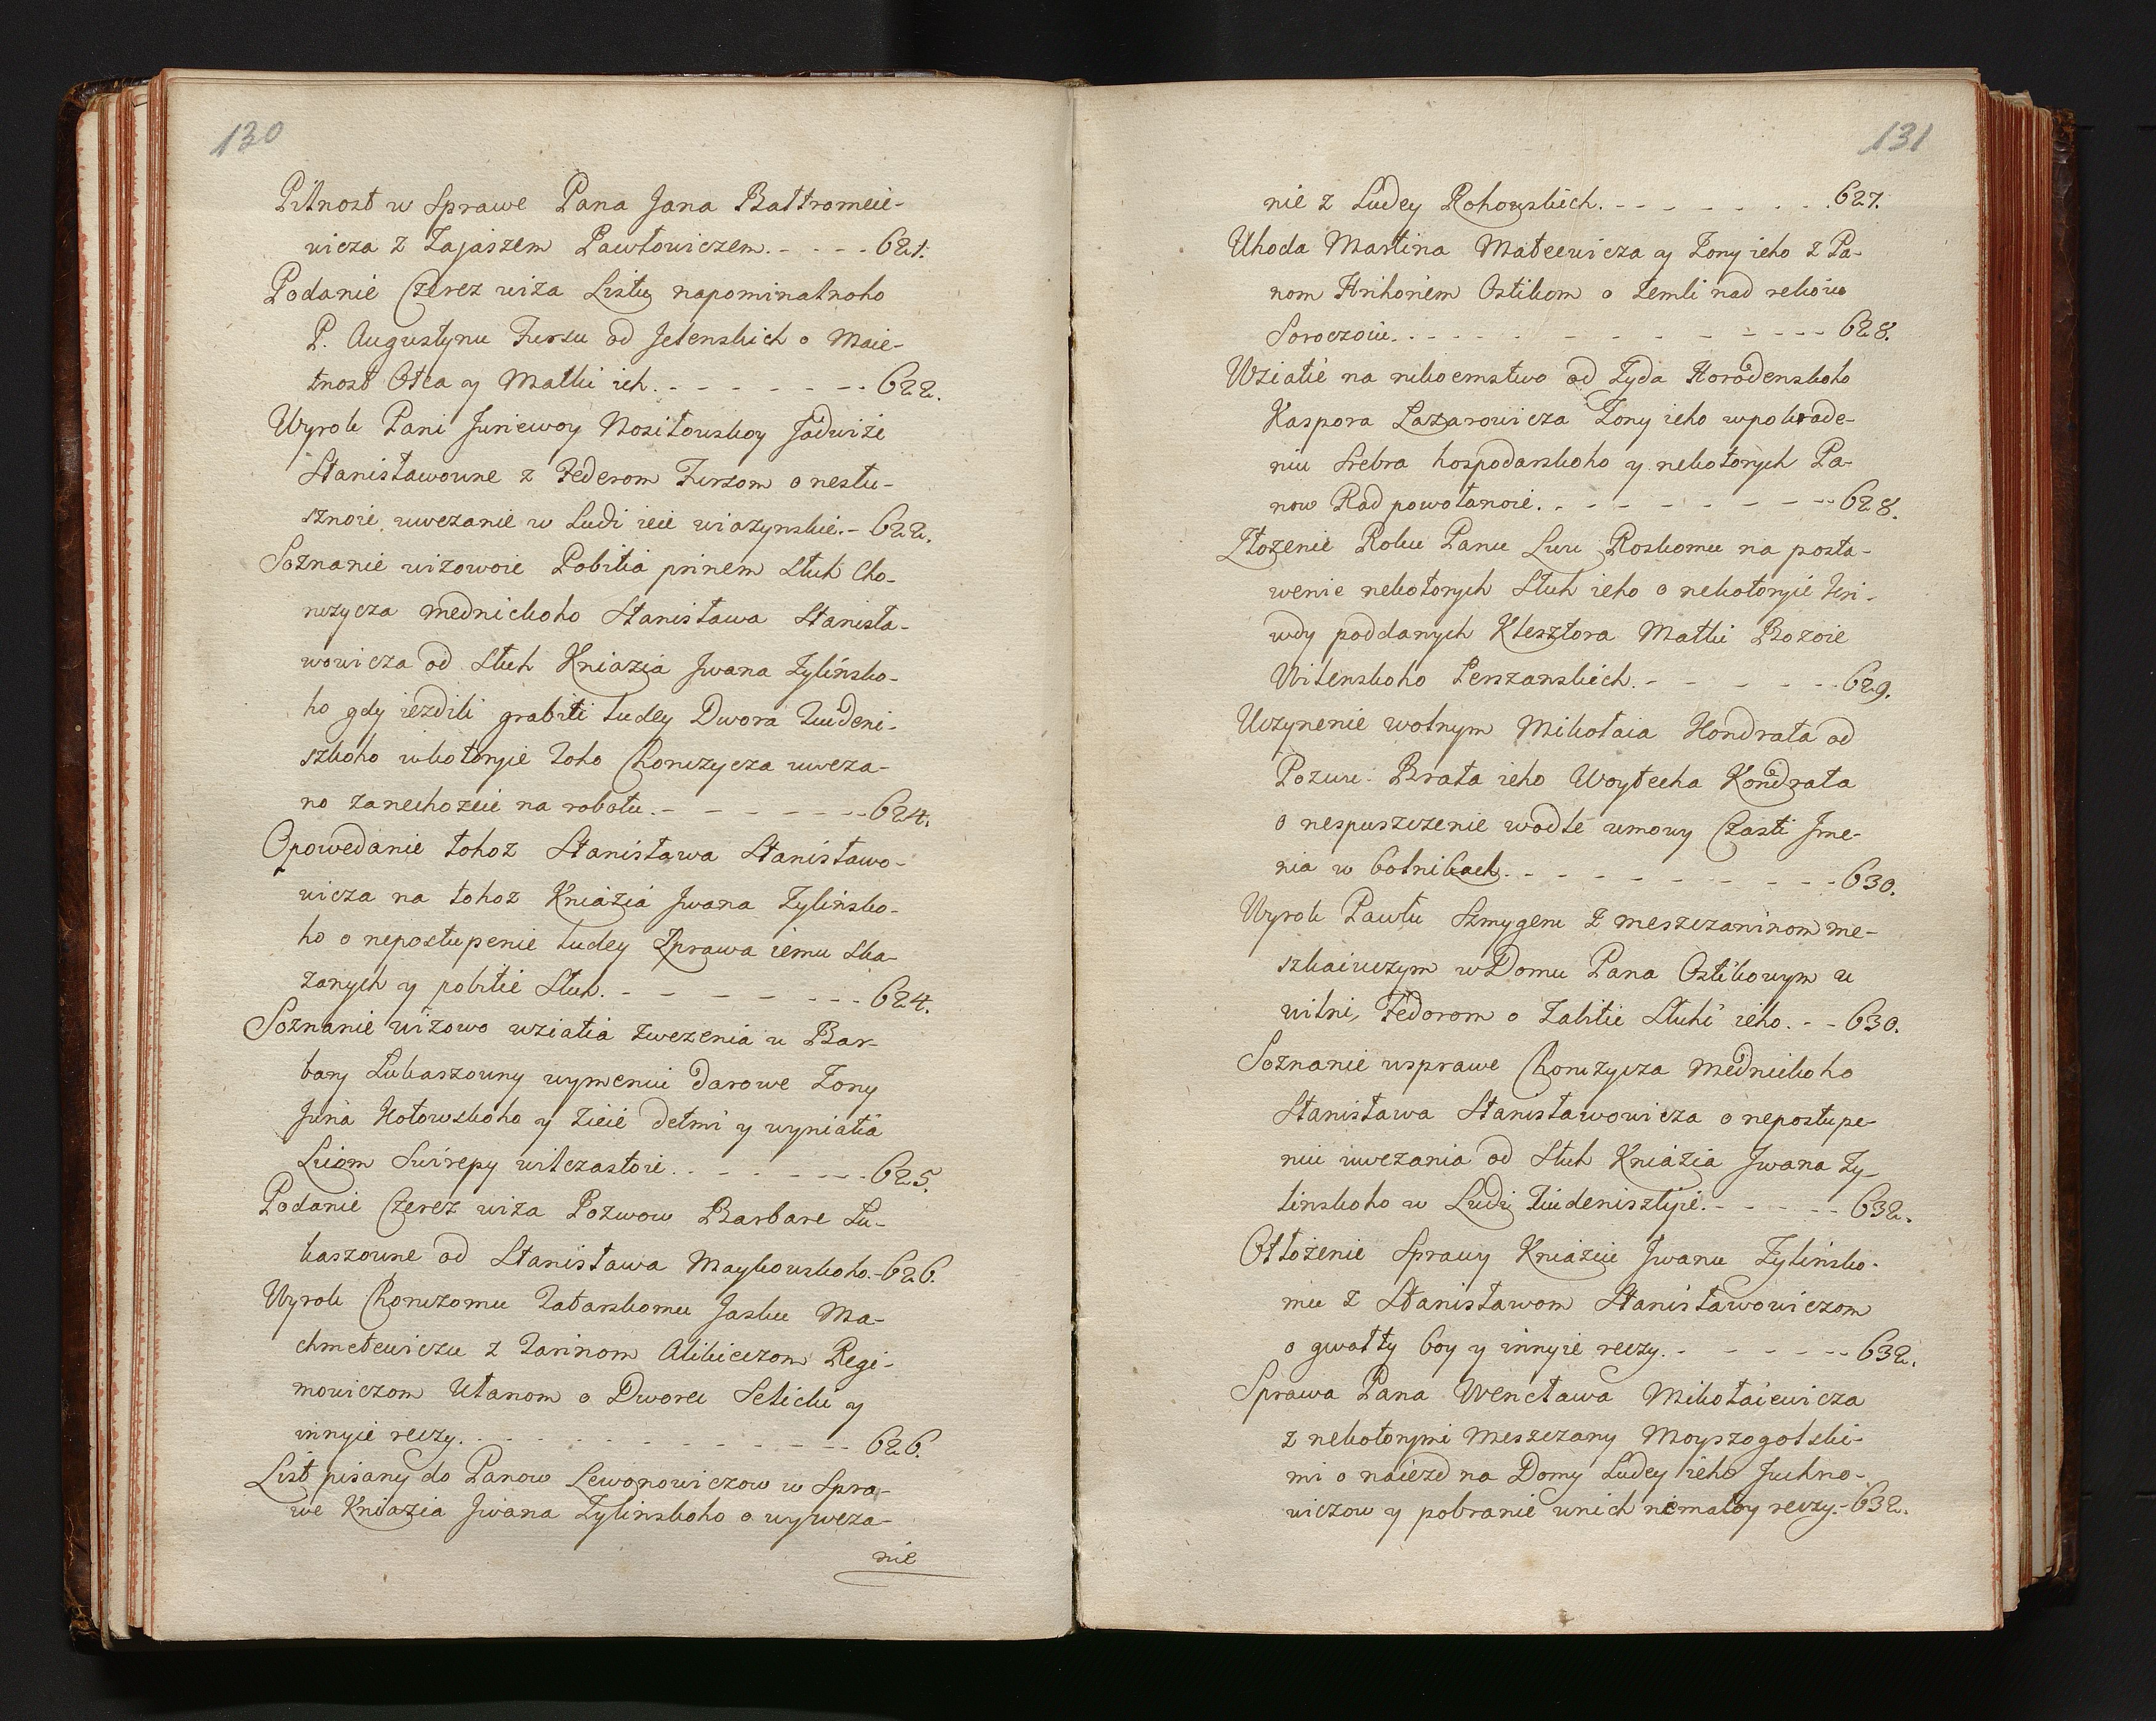 130
Pilnost w Sprawe Pana Jana Baltromeie-
wicza z Zajaszem Pawłowiczem. - - - - 621.
Podanie Czerez wiża Listu napominalnoho
P. Augustynu Fursu od Jelenskich o Maie-
tnost Otca y Matki ich. - - - - - - - 622.
Wyrok Pani Juriewoy Nosiłowskoy Jadwiże
Stanisławowne z Federom Fursom o neslu-
sznoie uwezanie w Ludi ieie wiazynskie. - 622.
Soznanie wiżowoie Pobitia prinem Sluh Cho-
rużycza mednickoho Stanisława Stanisła-
wowicza od Sluh Kniazia Jwana Żylińsko-
ho gdy iezdili grabiti ludey Dwora Tiudeni-
szkoho wkotoryie toho Chorużycza uweza-
no zanechożeie na robotu. - - - - - - 624.
Opowedanie tohoż Stanisława Stanisławo-
wicza na tohoż Kniazia Jwana Żylińsko-
ho o nepostupenie ludey Zprawa iemu ska-
zanych y pobitie Sluh. - - - - - - - 624.
Soznanie wiżowo wziatia zwezenia u Bar-
bary Lukaszowny wymeniu darowe Żony
Juria Hołowskoho y zieie detmi y wyniatia
Luiom Swirepy wilczastoie. - - - - - - 625.
Podanie Czerez wiża Pozwow Barbare Lu-
kaszowne od Stanisława Maykowskoho. - 626.
Wyrok Chorużomu Tatarskomu Jasku Ma-
chmetewiczu z Tarinom Alikieczom Regi-
mowiczom Ułanom o Dworec Selichi y
innyie reczy. - - - - - - - - - - 626.
List pisany do Panow Lewonowiczow w Spra-
we Kniazia Jwana Żylinskoho o wyweza-
nie
131
nie z Ludey Rohowskich. - - - - - - - 627.
Uhoda Martina Mateewicza y Żony ieho z Pa-
nom Hrihoriem Ostikom o zemli nad rekoiu
Soroczoiu. - - - - - - - - - - - 628.
Wziatie na rukoemstwo od Żyda Horodenskoho
Kaspora Łazarowicza Żony ieho wpokrade-
niu Srebra hospodarskoho y nekotorych Pa-
now Rad powołanoie. - - - - - - - - - 628.
Złożenie Roku Panu Luu Roskomu na posta-
wenie nekotorych Sluh ieho o nekotoryie kri-
wdy poddanych Klesztora Matki Bozoie
Wilenskoho Perszanskich. - - - - - - 629.
Uczynenie wolnym Mikołaia Kondrata od
Pozwu Brata ieho Woytecha Kondrata
o nespuszczenie wodle umowy Czasti Jme-
nia w Botnikach. - - - - - - - - - 630.
Wyrok Pawlu Szmygeru z meszczaninom me-
szkaiuczym w Domu Pana Ostikowym u
wilni, Fedorom o Zabitie Sluhi ieho. - - 630.
Soznanie wsprawe Chorużycza Mednickoho
Stanisława Stanisławowicza o nepostupe-
niu uwezania od Sluh Kniazia Jwana Ży-
linskoho w Ludi Tiudeniszkyie. - - - - - 632.
Otłożenie Sprawy Kniaziu Jwanu Żylińsko-
mu z Stanisławom Stanisławowiczom
o gwałty boy y innyie reczy. - - - - - - 632.
Sprawa Pana Wencława Mikołaiewicza
z nekotorymi Meszczany Moyszogolski-
mi o naiezd na Domy Ludey ieho Juchno-
wiczow y pobranie unich niemałoy reczy. - 632.